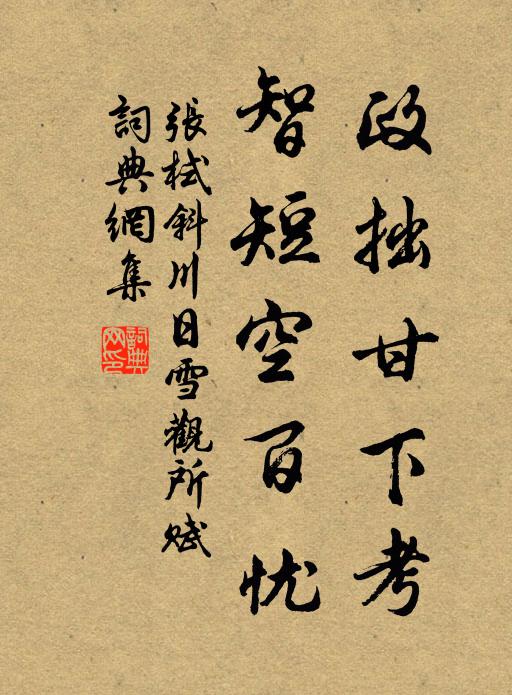 政拙甘下考
智短空百忧
張栻斜川日雪觀所賦
詞典網集
詞典网印